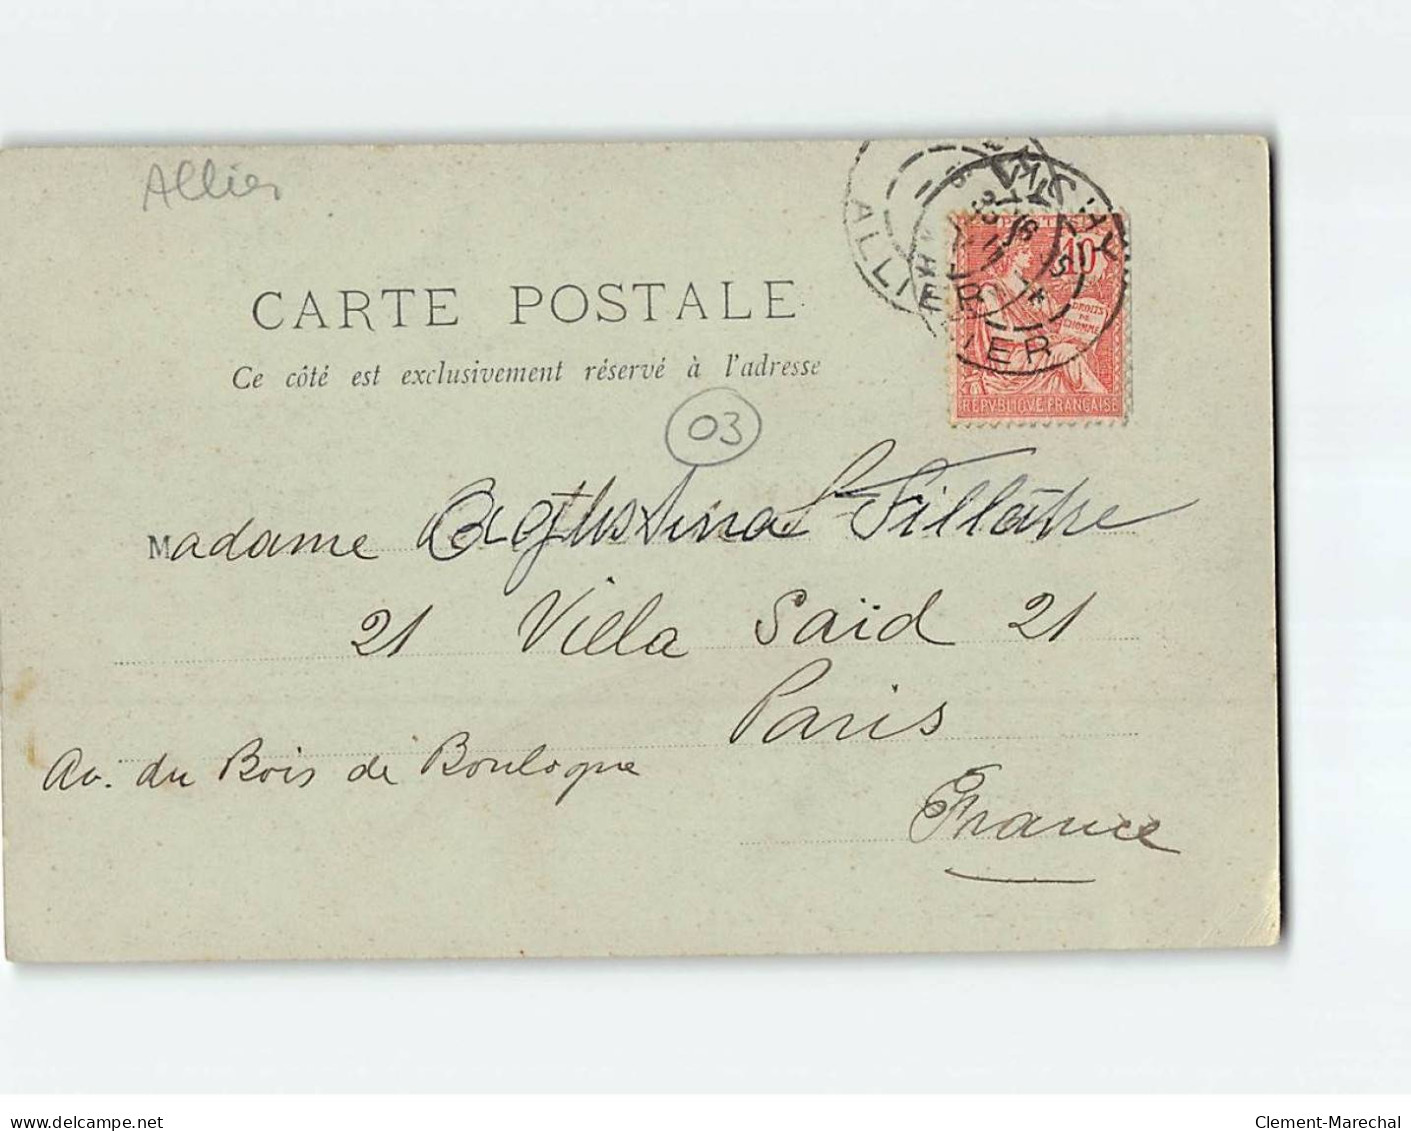 Allier
ALLIER
LIER
10
DROITS
DE
L'HOMME
REPVBLIQVE FRANÇAISE
CARTE POSTALE
Ce côté est exclusivement réservé à l'adresse
03
Madame Fillâtre
21 Villa Saïd 21
Paris
Av. du Bois de Boulogne
France
www.delcampe.net
Clement-Marechal